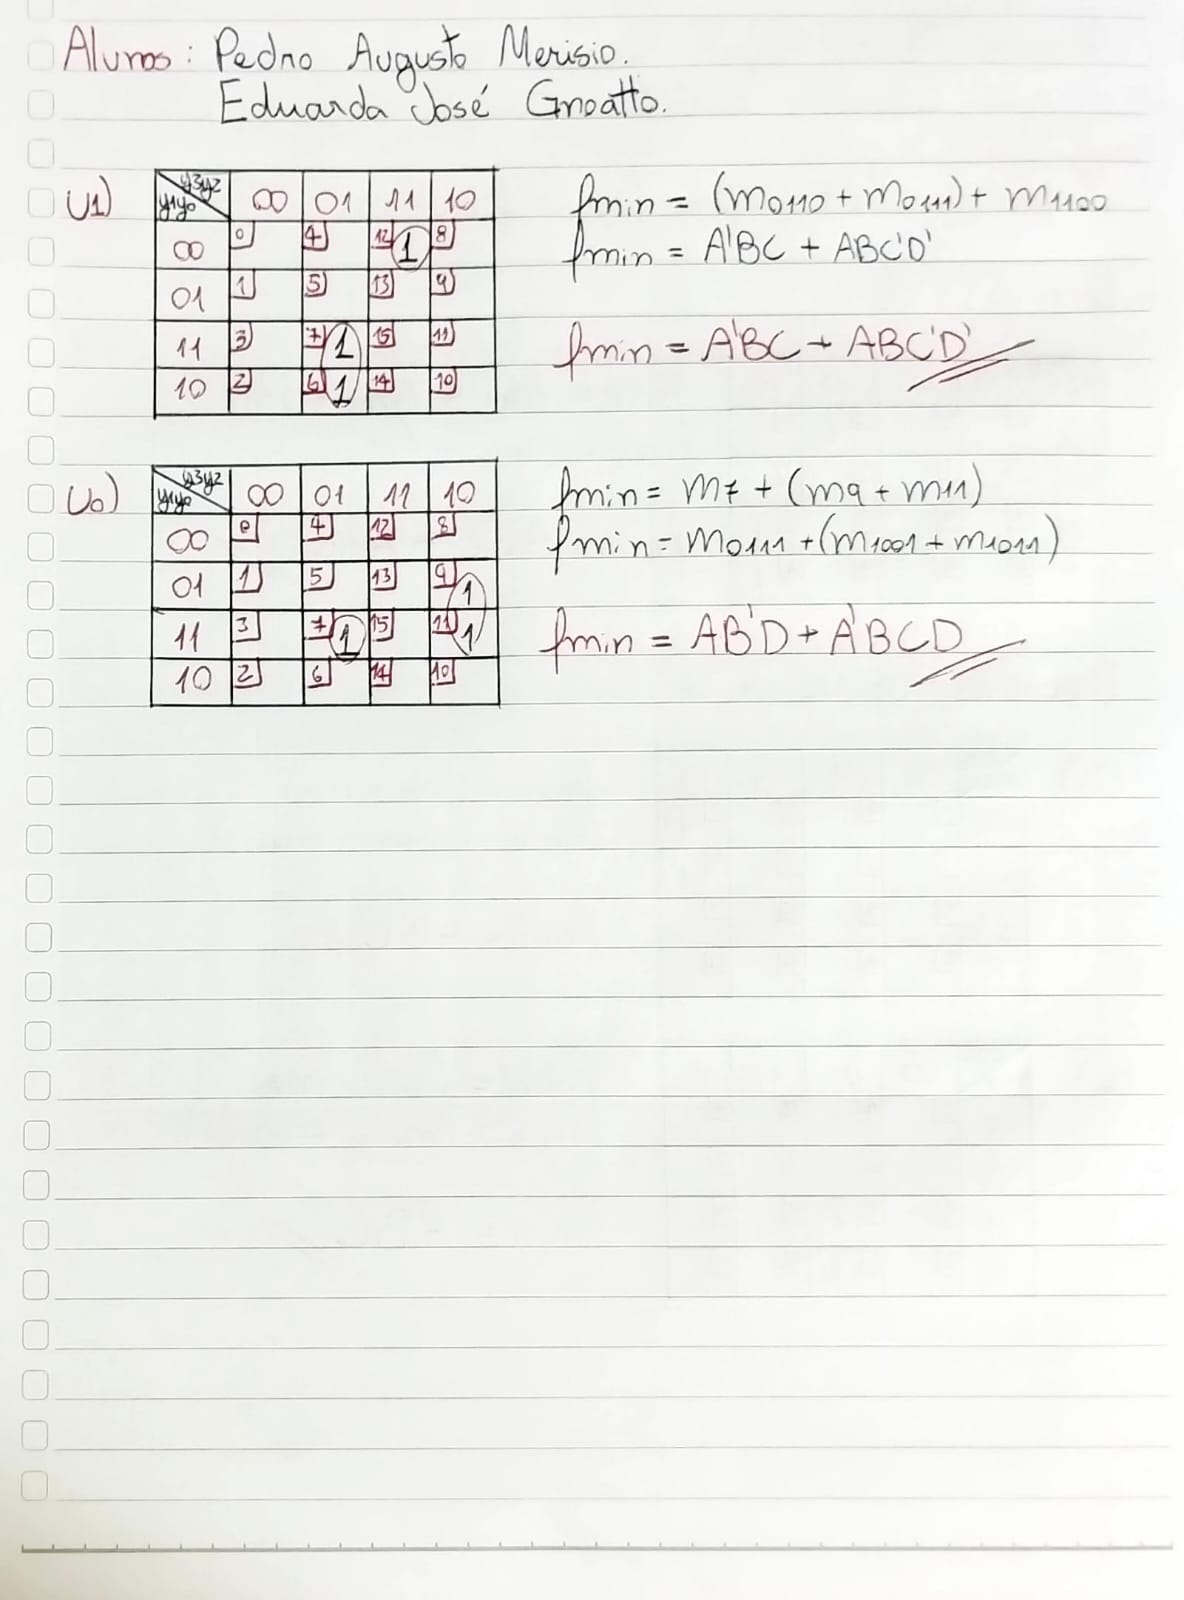 Alunos: Pedro Augusto Merisio.
Eduarda José Gnoatto.
U1)
y3y2
y1y0
00 01 11 10
00 0 4 12 1 8
01 1 5 13 9
11 3 7 1 15 11
10 2 6 1 14 10
fmin = (m0110 + m0111) + m1100
fmin = A'BC + ABC'D'
fmin = A'BC + ABC'D'
U0)
y3y2
y1y0
00 01 11 10
00 0 4 12 8
01 1 5 13 9 1
11 3 7 1 15 11 1
10 2 6 14 10
fmin = m7 + (m9 + m11)
fmin = m0111 + (m1001 + m1011)
fmin = AB'D + A'BCD